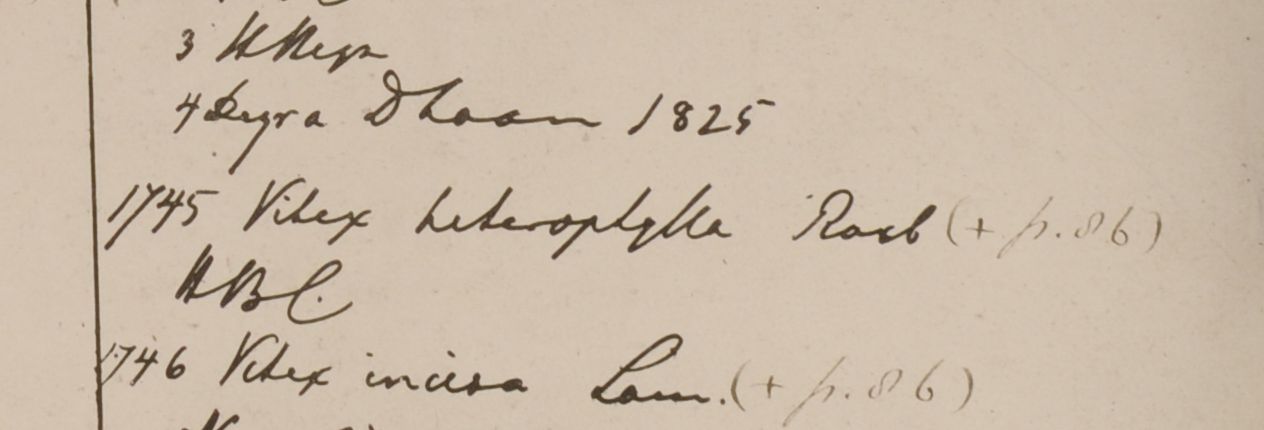 3 H Heyn
4 Deyra Dhoon 1825
1745 Vitex heterophylla Roxb (+ p. 86)
HBC.
1746 Vitex incisa Lam. (+ p. 86)